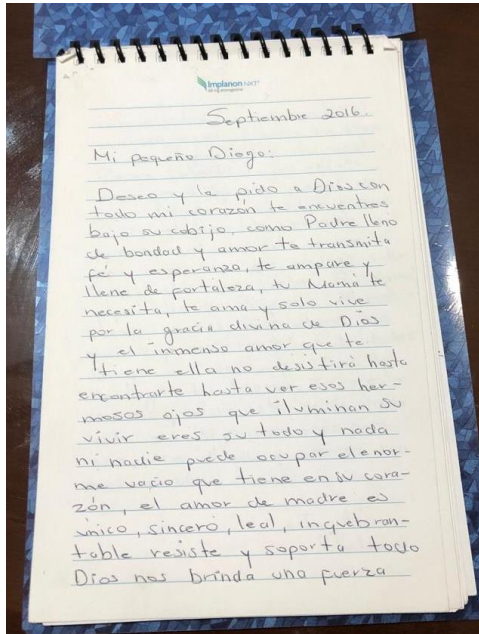 Implanon NXT
Septiembre 2016.
Mi pequeño Diego:
Deseo y le pido a Dios con
todo mi corazón te encuentres
bajo su cobijo, como Padre lleno
de bondad y amor te transmita
fé y esperanza, te ampare y
llene de fortaleza, tu Mamá te
necesita, te ama y solo vive
por la gracia divina de Dios
y el inmenso amor que te
tiene ella no desistirá hasta
encontrarte hasta ver esos her-
mosos ojos que iluminan su
vivir eres su todo y nada
ni nadie puede ocupar el enor-
me vacio que tiene en su cora-
zón, el amor de madre es
único, sincero, leal, inquebran-
table resiste y soporta todo
Dios nos brinda una fuerza